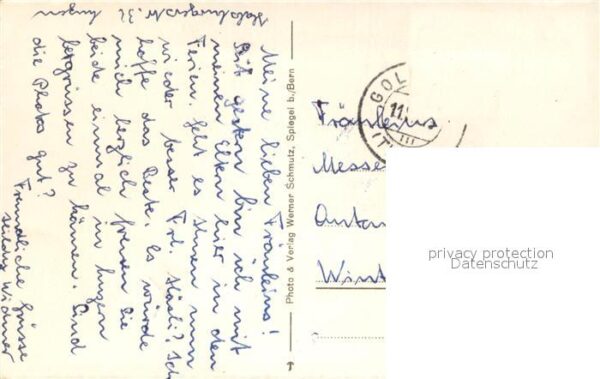 Habsburgerstr. 31 Luzern
Meine lieben Fräuleins!
Seit gestern bin ich mit
meinen Eltern hier in den
Ferien. Geht es Ihnen nun
wieder besser Frl. Stäubli? Ich
hoffe das Beste. Es würde
mich herzlich freuen Sie
beide einmal in Luzern
begrüssen zu können. Sind
die Photos gut?
Freundliche Grüsse
Widmer
Photo & Verlag Werner Schmutz, Spiegel b./Bern
GOL
11.
III
Fräuleins
Messe
Anton
Wint
privacy protection
Datenschutz